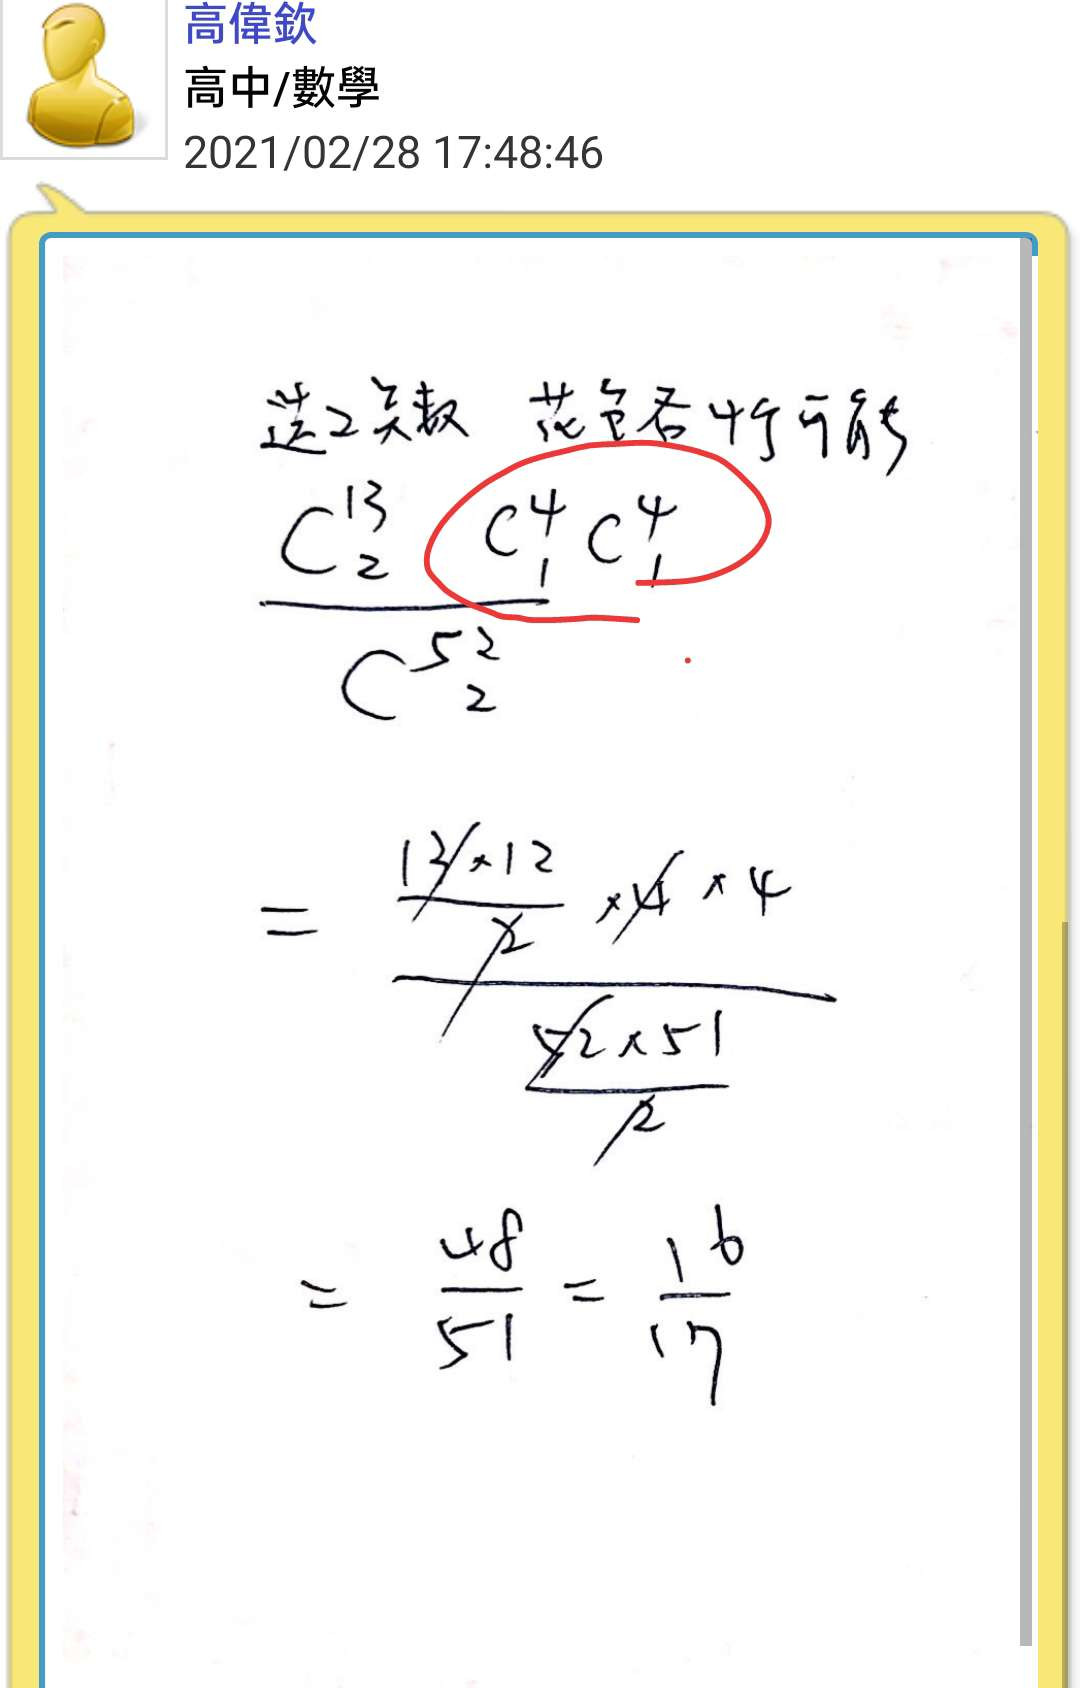 高偉欽
高中/數學
2021/02/28 17:48:46
選2點数 花色各4種可能
C 13 2 C 4 1 C 4 1
C 52 2
= 13×12 / 2 ×4 ×4
52×51 / 2
= 48/51 = 16/17